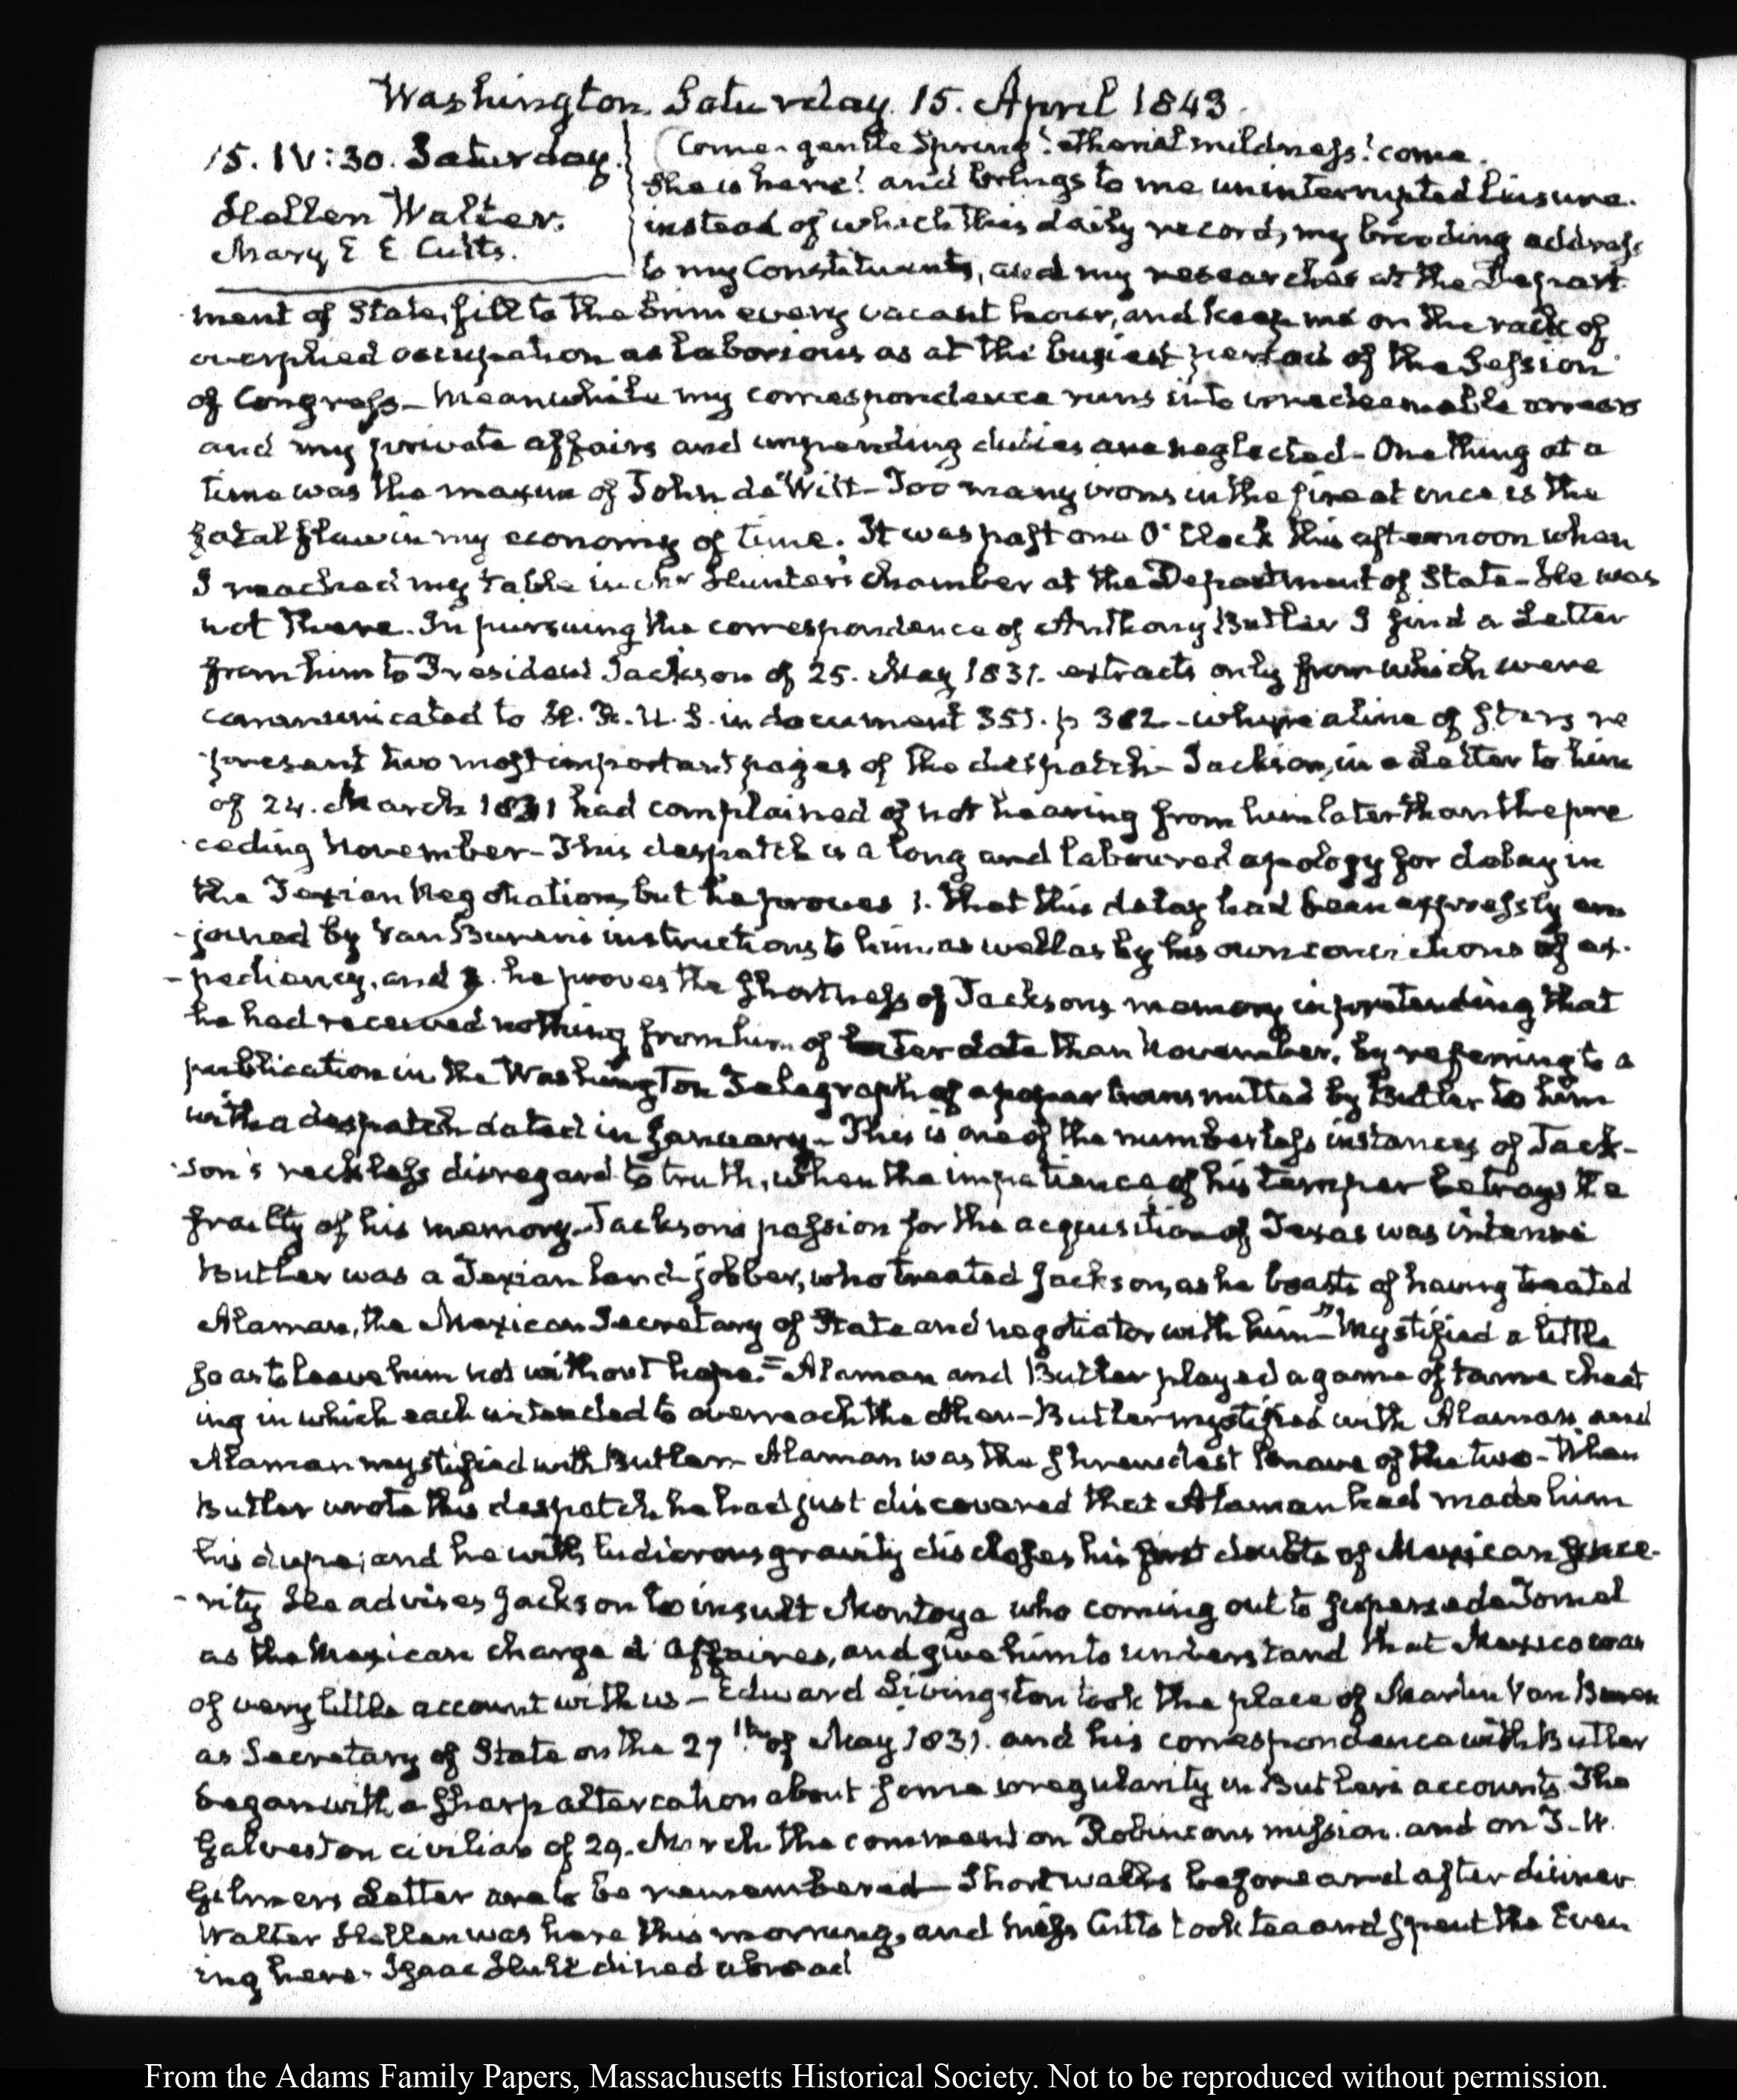 Washington Saturday 15. April 1843.
15. IV:30. Saturday.
Hellen Walter.
Mary E E Cutts.
Come gentle Spring! etherial mildness! come.
She is here! and brings to me uninterrupted leisure.
instead of which this daily record, my brooding address
to my Constituents, and my researches at the Depart
ment of State, fill to the brim every vacant hour, and keep me on the rack of
overplied occupation as laborious as at the busiest period of the Session
of Congress— Meanwhile my correspondence runs into irredeemable arrears
and my private affairs and impending duties are neglected— One thing at a
time was the maxim of John de Witt— Too many irons in the fire at once is the
fatal flaw in my economy of time. It was past one O'Clock this afternoon when
I reached my table in Mr Hunter's chamber at the Department of State— He was
not there. In pursuing the correspondence of Anthony Butler I find a Letter
from him to President Jackson of 25. May 1831. extracts only from which were
communicated to H. R. U. S. in document 351. p 382— where a line of stars re
present two most important pages of the despatch— Jackson, in a Letter to him
of 24. March 1831 had complained of not hearing from him later than the pre
ceding November— This despatch is a long and laboured apology for delay in
the Texian Negotiation, but he proves 1. that this delay had been expressly en
-joined by Van Buren's instructions to him, as well as by his own convictions of ex-
-pediency, and 2. he proves the shortness of Jacksons memory in pretending that
he had received nothing from him of later date than November, by referring to a
publication in the Washington Telegraph of a paper transmitted by Butler to him
with a despatch dated in January— This is one of the numberless instances of Jack-
-son's reckless disregard to truth, when the impatience of his temper betrays the
frailty of his memory. Jacksons passion for the acquisition of Texas was intense
Butler was a Texian land-jobber, who treated Jackson, as he boasts of having treated
Alaman, the Mexican Secretary of State and negotiator with him— "Mystified a little
so as to leave him not without hope."— Alaman and Butler played a game of  cheat
ing in which each intended to overreach the other— Butler mystified with Alaman and
Alaman mystified with Butler— Alaman was the shrewdest knave of the two— When
Butler wrote this despatch, he had just discovered that Alaman had made him
his dupe; and he with ludicrous gravity discloses his first doubts of Mexican since-
-rity He advises Jackson to insult Montoya who coming out to supersede Tornel
as the Mexican charge d'Affaires, and give him to understand that Mexico was
of very little account with us— Edward Livingston took the place of Martin Van Buren
as Secretary of State on the 27th of May 1831. and his correspondence with Butler
began with a sharp altercation about some irregularity in Butlers accounts. The
Galveston civilian of 29. March the comment on Robinsons mission. and on T. W.
Gilmers Letter are to be remembered— Short walks before and after dinner
Walter Hellen was here this morning, and Miss Cutts took tea and spent the Even
ing here. Isaac Hull dined abroad
From the Adams Family Papers, Massachusetts Historical Society. Not to be reproduced without permission.